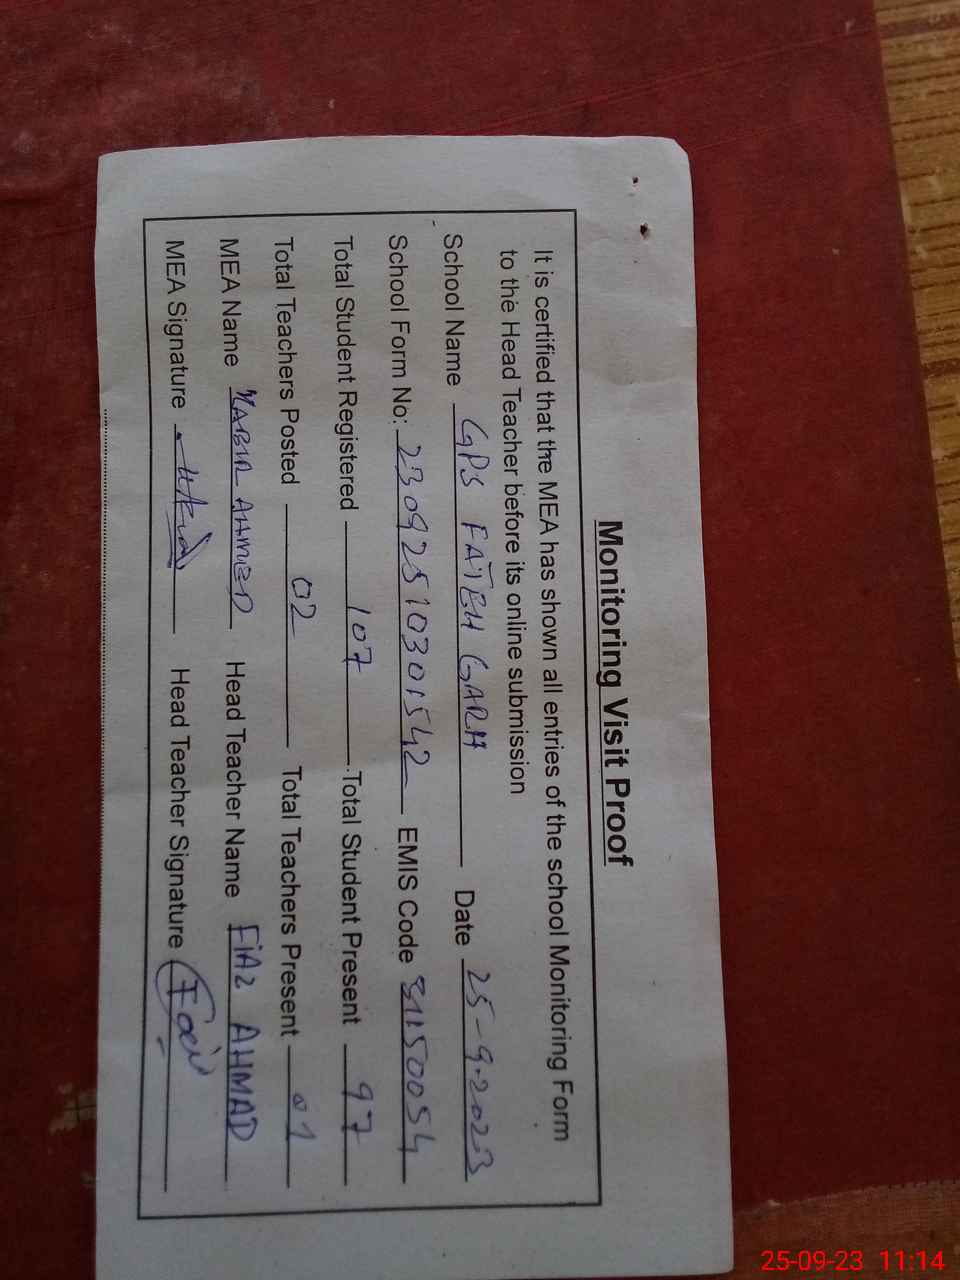 Monitoring Visit Proof
It is certified that the MEA has shown all entries of the school Monitoring Form
to the Head Teacher before its online submission
School Name GPS FATEH GARH Date 25-9-2023
School Form No: 23092510301542 EMIS Code 31150054
Total Student Registered 107 Total Student Present 97
Total Teachers Posted 02 Total Teachers Present 01
MEA Name AHMED Head Teacher Name FIAZ AHMAD
MEA Signature Head Teacher Signature
25-09-23 11:14